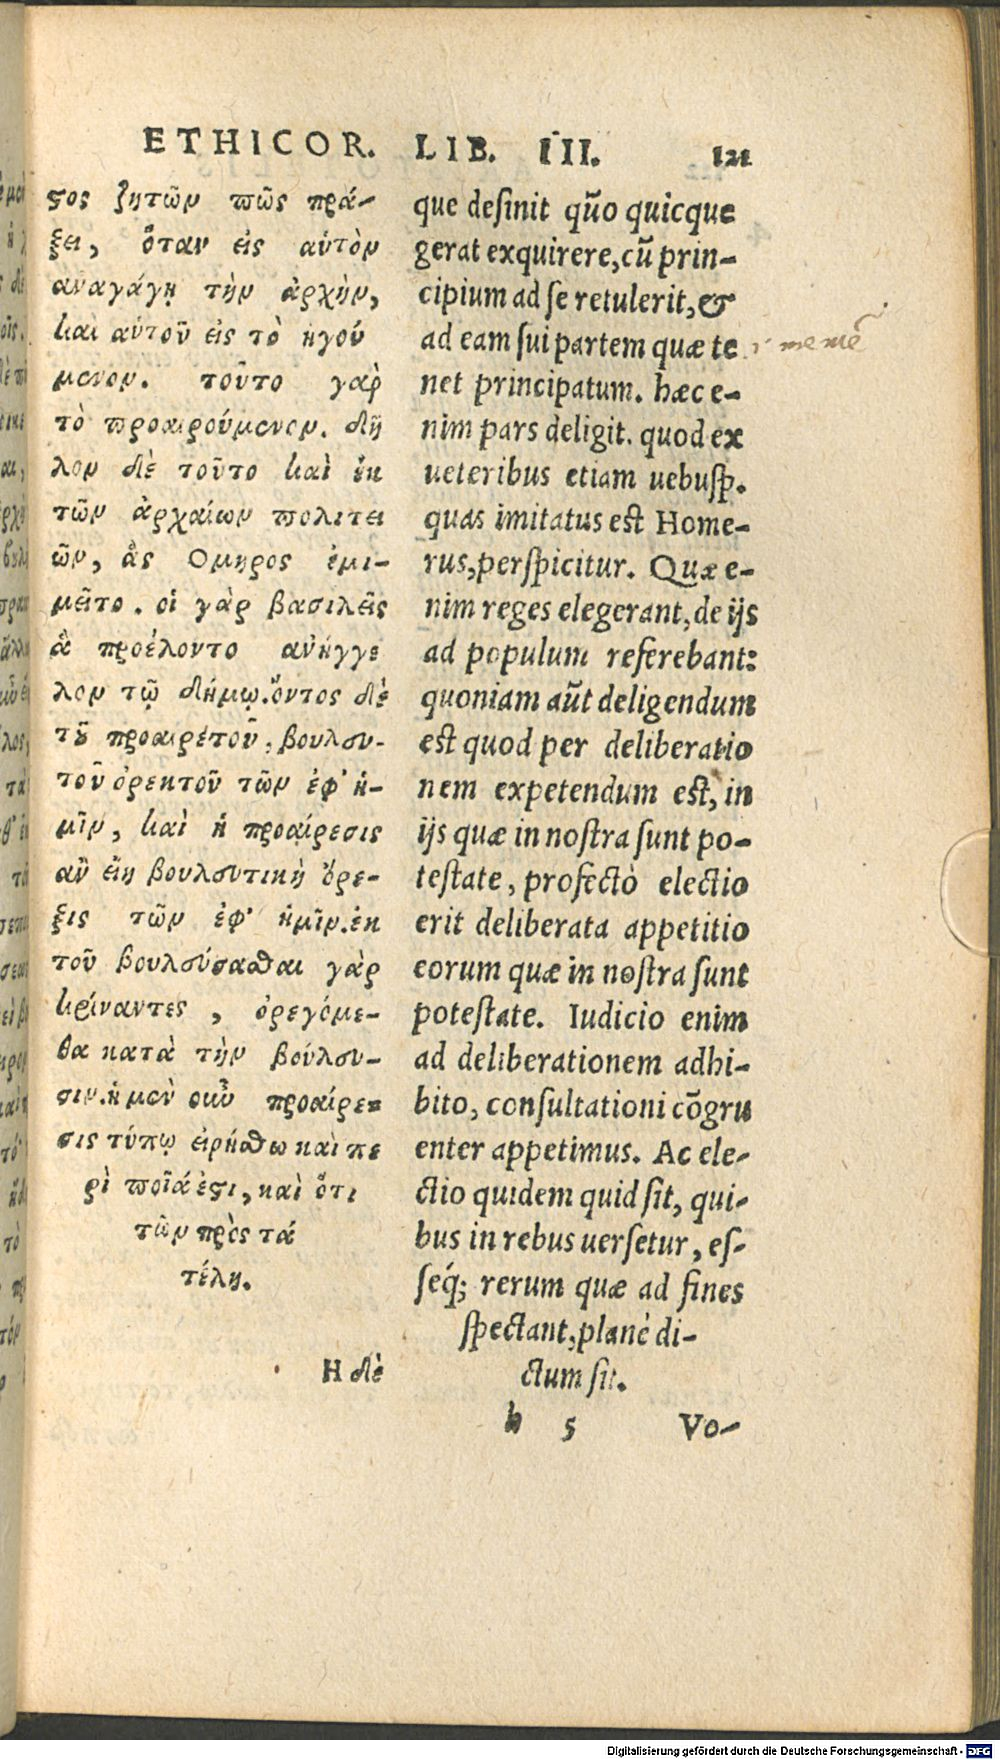 ETHICOR. LIB. III. 121
ϛος ζητῶν πῶς πρά-
ξει, ὅταν εἰς αὑτὸν
αναγάγῃ τὴν ἀρχὴν,
καὶ αὑτοῦ εἰς τὸ ἡγού
μενον. τοῦτο γαρ
τὸ προαιρούμενον. δῆ
λον δὲ τοῦτο καὶ ἐκ
τῶν ἀρχαίων πολιτει
ῶν, ἃς Ομηρος ἐμι-
μεῖτο. οἱ γὰρ βασιλεῖς
ἃ προέλοντο ανήγγε
λον τῷ δήμῳ. ὄντος δὲ
τȣ͂ προαιρέτοῦ, βουλευ-
τοῦ ὀρεκτοῦ τῶν ἐφ' ἡ-
μῖν, καὶ ἡ προαίρεσις
αν εἴη βουλευτικὴ ὄρε-
ξις τῶν ἐφ' ἡμῖν. ἐκ
τοῦ βουλεύσασθαι γὰρ
κρίναντες, ὀρεγόμε-
θα κατὰ τὴν βούλευ-
σιν. ἡ μεν οὖν προαίρε=
σις τύπῳ εἰρήσθω καὶ πε
ρὶ ποῖά ἐϛι, καὶ ὅτι
τῶν πρὸς τά
τέλη.
Η δὲ
que desinit qūo quicque
gerat exquirere, cū prin-
cipium ad se retulerit, &
ad eam sui partem quæ te
net principatum. hæc e-
nim pars deligit. quod ex
ueteribus etiam uebusp̄.
quas imitatus est Home-
rus, perspicitur. Quæ e-
nim reges elegerant, de ijs
ad populum referebant:
quoniam aūt deligendum
est quod per deliberatio
nem expetendum est, in
ijs quæ in nostra sunt po-
testate, profectò electio
erit deliberata appetitio
eorum quæ in nostra sunt
potestate. Iudicio enim
ad deliberationem adhi-
bito, consultationi cōgru
enter appetimus. Ac ele-
ctio quidem quid sit, qui-
bus in rebus uersetur, es-
seq́; rerum quæ ad fines
spectant, planè di-
ctum sit.
h 5 Vo-
Digitalisierung gefördert durch die Deutsche Forschungsgemeinschaft - DFG